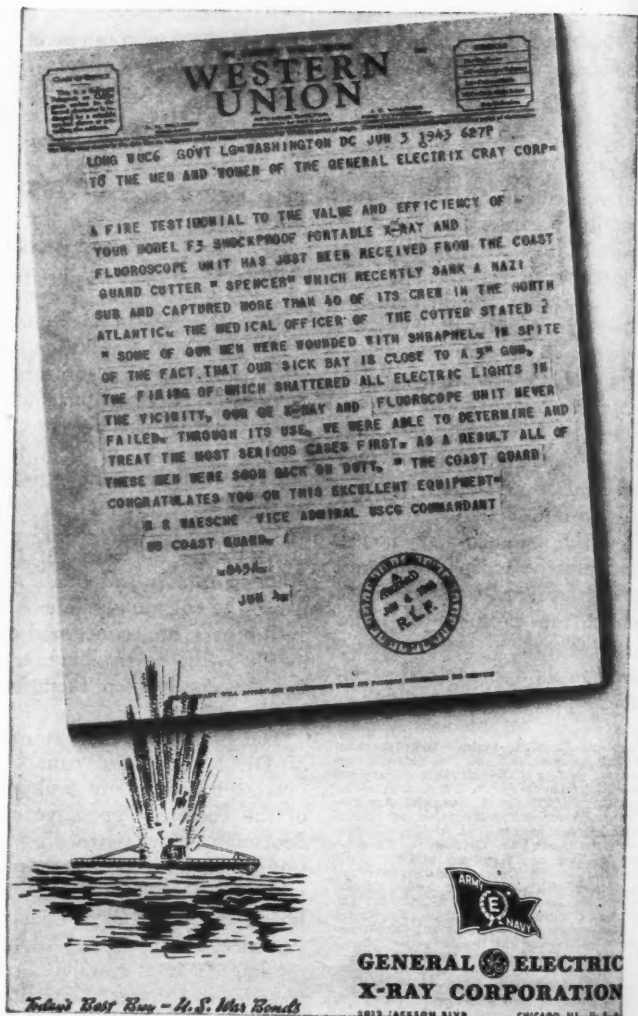 CLASS OF SERVICE
WESTERN
UNION
LONG WUC6 GOVT LG=WASHINGTON DC JUN 3 1943 627P
TO THE MEN AND WOMEN OF THE GENERAL ELECTRIX CRAY CORP=
A FIRE TESTIMONIAL TO THE VALUE AND EFFICIENCY OF
YOUR MODEL F3 SHOCKPROOF PORTABLE X-RAY AND
FLUOROSCOPE UNIT HAS JUST BEEN RECEIVED FROM THE COAST
GUARD CUTTER " SPENCER" WHICH RECENTLY SANK A NAZI
SUB AND CAPTURED MORE THAN 40 OF ITS CREW IN THE NORTH
ATLANTIC. THE MEDICAL OFFICER OF THE CUTTER STATED
" SOME OF OUR MEN WERE WOUNDED WITH SHRAPNEL. IN SPITE
OF THE FACT THAT OUR SICK BAY IS CLOSE TO A 3" GUN,
THE FIRING OF WHICH SHATTERED ALL ELECTRIC LIGHTS IN
THE VICINITY, OUR GE X-RAY AND FLUORSCOPE UNIT NEVER
FAILED. THROUGH ITS USE, WE WERE ABLE TO DETERMINE AND
TREAT THE MOST SERIOUS CASES FIRST. AS A RESULT ALL OF
THESE MEN WERE SOON BACK ON DUTY. " THE COAST GUARD
CONGRATULATES YOU ON THIS EXCELLENT EQUIPMENT=
R R WAESCHE VICE ADMIRAL USCG COMMANDANT
US COAST GUARD.
845A.
JUN 4
JUN 4
R.L.F.
ARMY
E
NAVY
GENERAL GE ELECTRIC
X-RAY CORPORATION
2012 JACKSON BLVD. CHICAGO, ILL., U.S.A.
Today's Best Buy - U.S. War Bonds